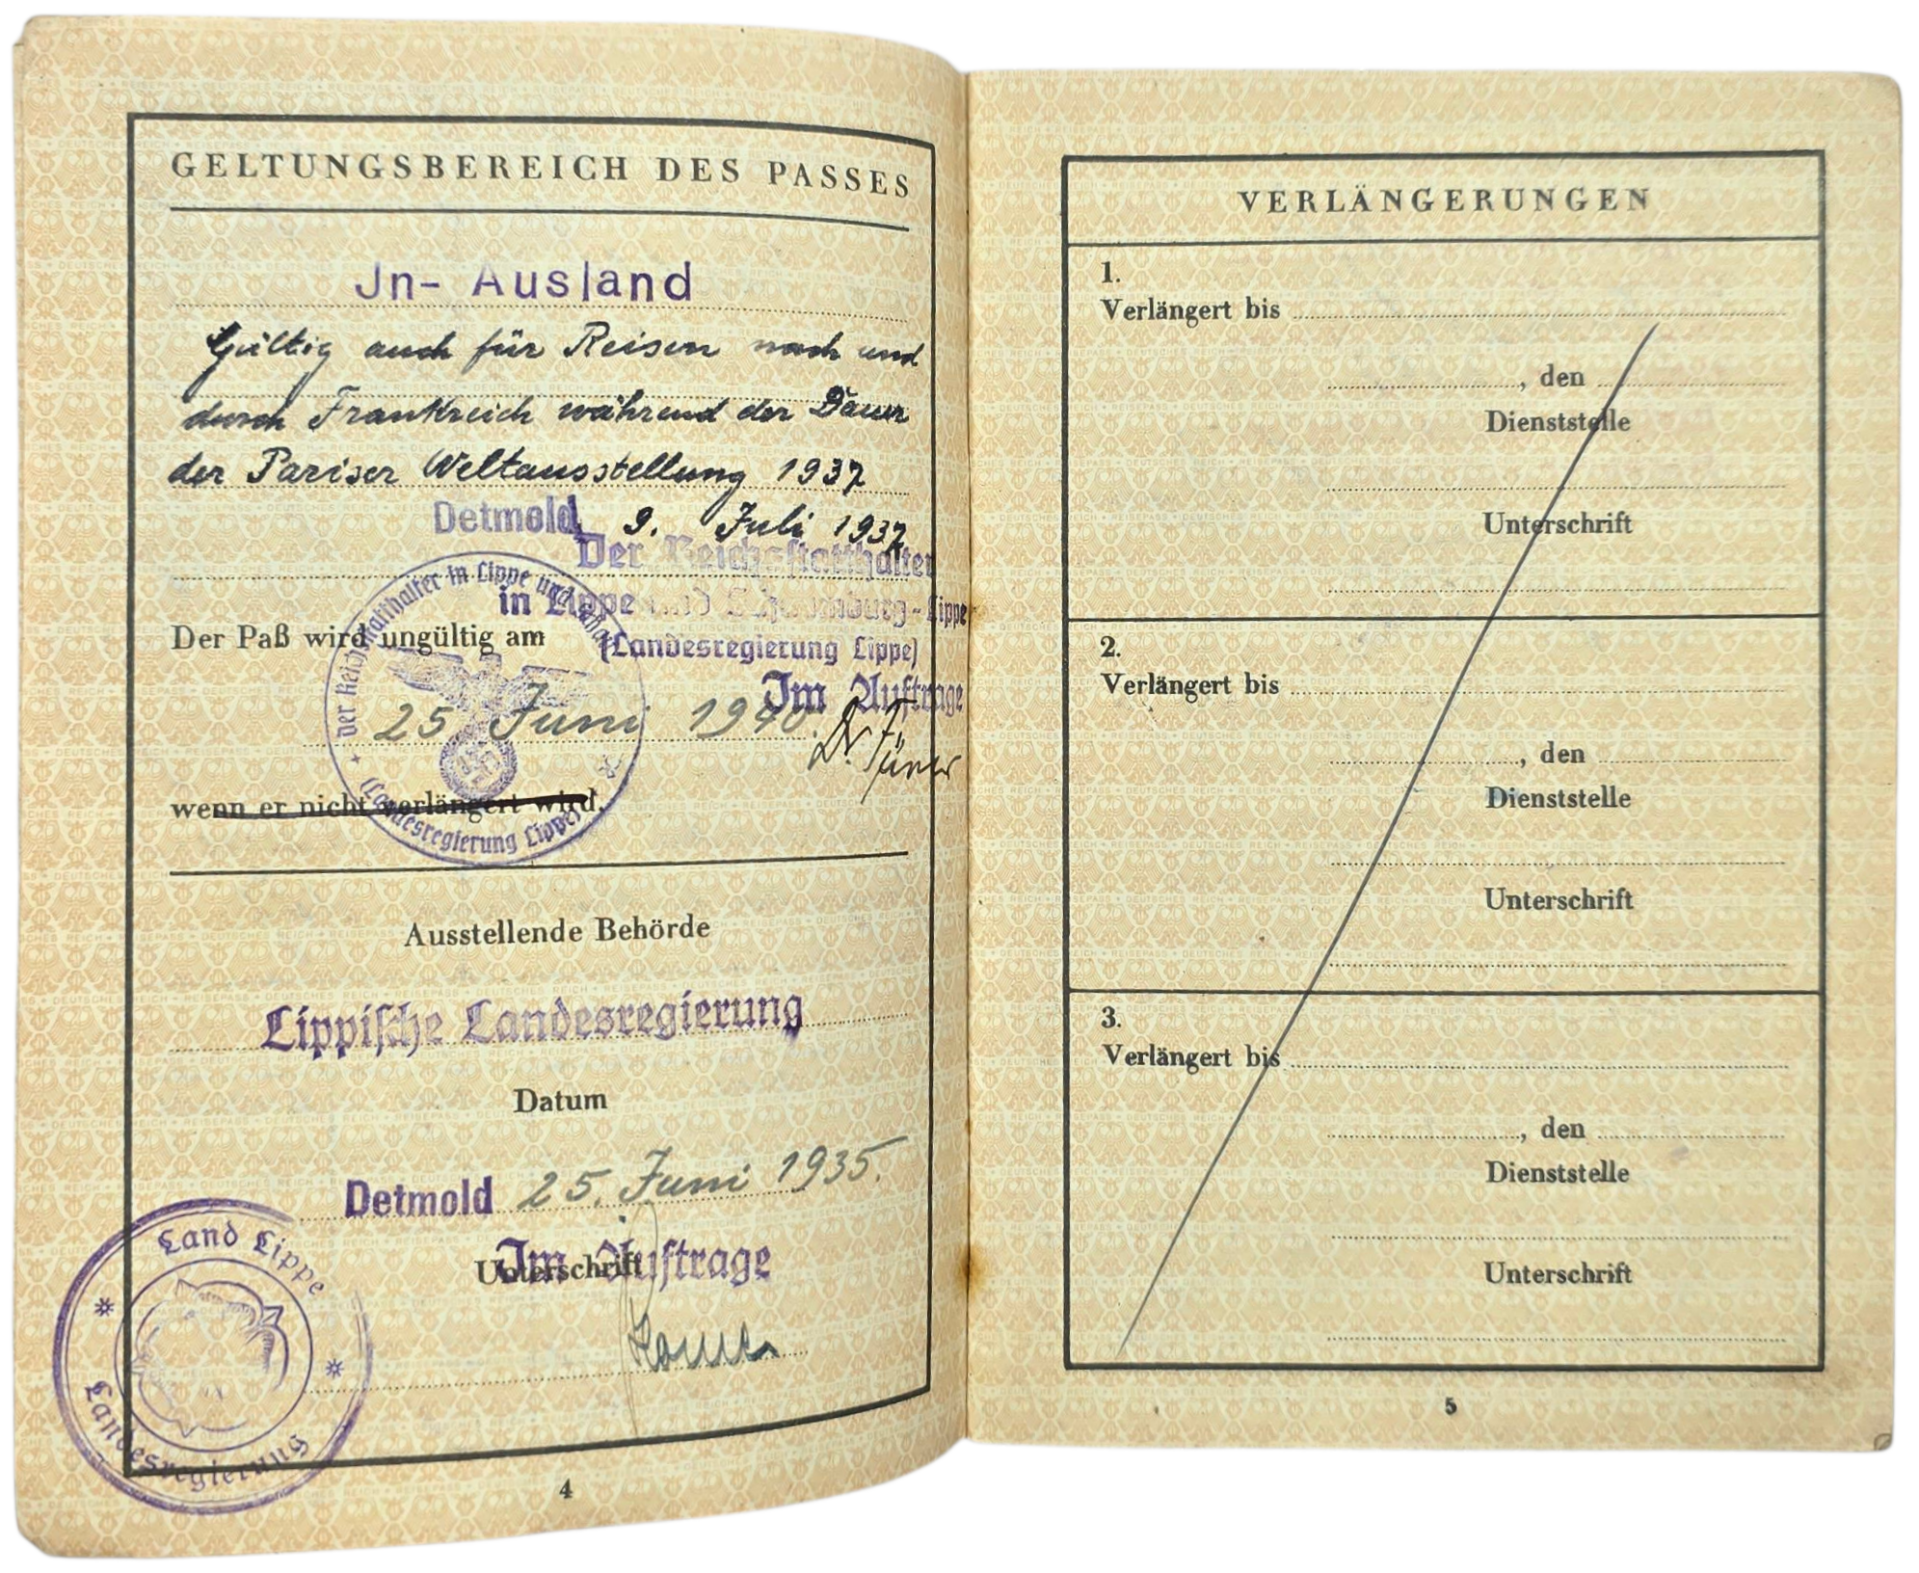 GELTUNGSBEREICH DES PASSES
Jn- Ausland
Gültig auch für Reisen nach und
durch Frankreich während der Dauer
der Pariser Weltausstellung 1937
Detmold, 9. Juli 1937
Der Reichsstatthalter
in Lippe und Schaumburg-Lippe
(Landesregierung Lippe)
Im Auftrage
der Reichsstatthalter in Lippe und
(Landesregierung Lippe)
Der Paß wird ungültig am
25 Juni 1940.
wenn er nicht verlängert wird.
Ausstellende Behörde
Lippische Landesregierung
Datum
Detmold 25. Juni 1935.
Im Auftrage
Unterschrift
Land Lippe
Landesregierung
4
VERLÄNGERUNGEN
1.
Verlängert bis
, den
Dienststelle
Unterschrift
2.
Verlängert bis
, den
Dienststelle
Unterschrift
3.
Verlängert bis
, den
Dienststelle
Unterschrift
5